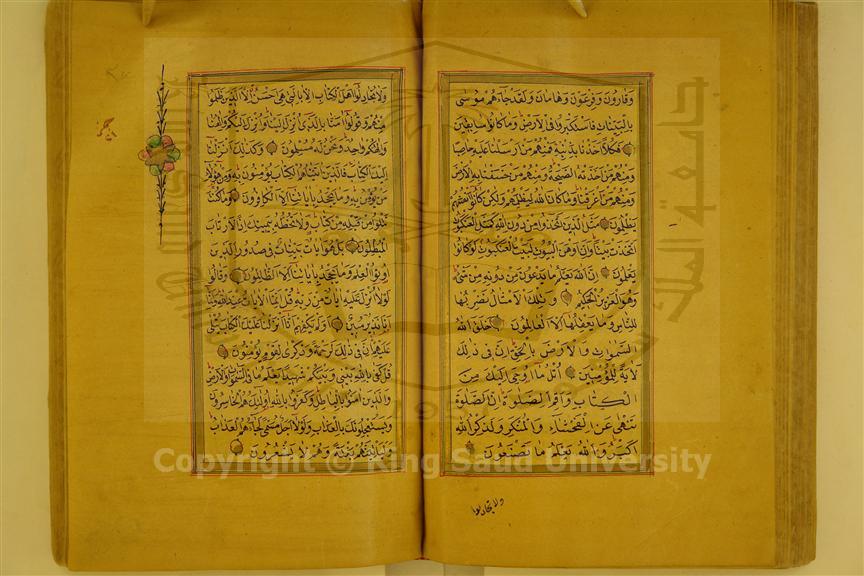 وقارون وفرعون وهامان ولقد جاءهم موسى
بالبينات فاستكبروا في الارض وما كانوا سابقين
فكلا اخذنا بذنبه فمنهم من ارسلنا عليه حاصبا
ومنهم من اخذته الصيحة ومنهم من خسفنا به الارض
ومنهم من اغرقنا وما كان الله ليظلمهم ولكن كانوا انفسهم
يظلمون مثل الذين اتخذوا من دون الله كمثل العنكبوت
اتخذت بيتا وان اوهن البيوت لبيت العنكبوت لو كانوا
يعلمون ان الله يعلم ما يدعون من دونه من شئ
وهو العزيز الحكيم وتلك الامثال نضربها
للناس وما يعقلها الا العالمون خلق الله
السموات والارض بالحق ان في ذلك
لاية للمؤمنين اتل ما اوحى اليك من
الكتاب واقم الصلوة ان الصلوة
تنهى عن الفحشاء والمنكر ولذكر الله
اكبر والله يعلم ما تصنعون
ولا تجادلوا
ولا تجادلوا اهل الكتاب الا بالتي هي احسن الا الذين ظلموا
منهم وقولوا امنا بالذى انزل الينا وانزل اليكم والهنا
والهكم واحد ونحن له مسلمون وكذلك انزلنا
اليك الكتاب فالذين اتيناهم الكتاب يؤمنون به ومن هؤلاء
من يؤمن به وما يجحد باياتنا الا الكافرون وما كنت
تتلوا من قبله من كتاب ولا تخطه بيمينك اذا لارتاب
المبطلون بل هو ايات بينات في صدور الذين
اوتوا العلم وما يجحد باياتنا الا الظالمون وقالوا
لولا انزل عليه ايات من ربه قل انما الايات عند الله وانما
انا نذير مبين اولم يكفهم انا انزلنا عليك الكتاب يتلى
عليهم ان في ذلك لرحمة وذكرى لقوم يؤمنون
قل كفى بالله بيني وبينكم شهيدا يعلم ما في السموات والارض
والذين امنوا بالباطل وكفروا بالله اولئك هم الخاسرون
ويستعجلونك بالعذاب ولولا اجل مسمى لجاءهم العذاب
ولياتينهم بغتة وهم لا يشعرون
Copyright © King Saud University